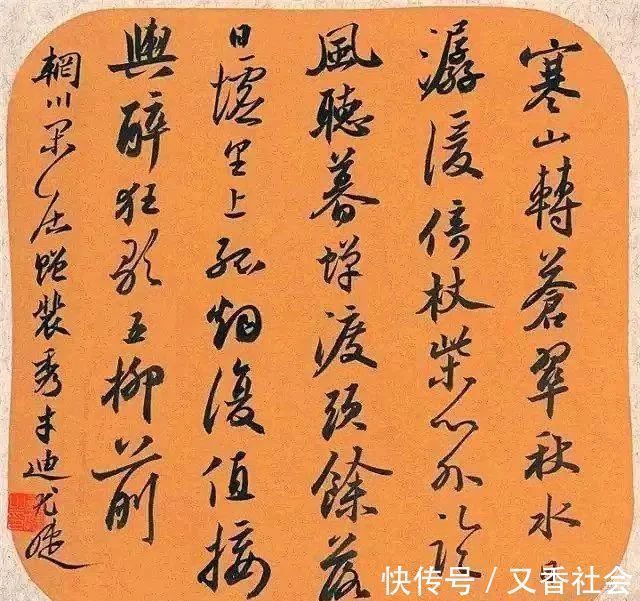 寒山轉蒼翠秋水日
潺湲倚杖柴門外臨
風聽暮蟬渡頭餘落
日墟里上孤烟復值接
輿醉狂歌五柳前
輞川閑居贈裴秀才迪
快传号 / 又香社会